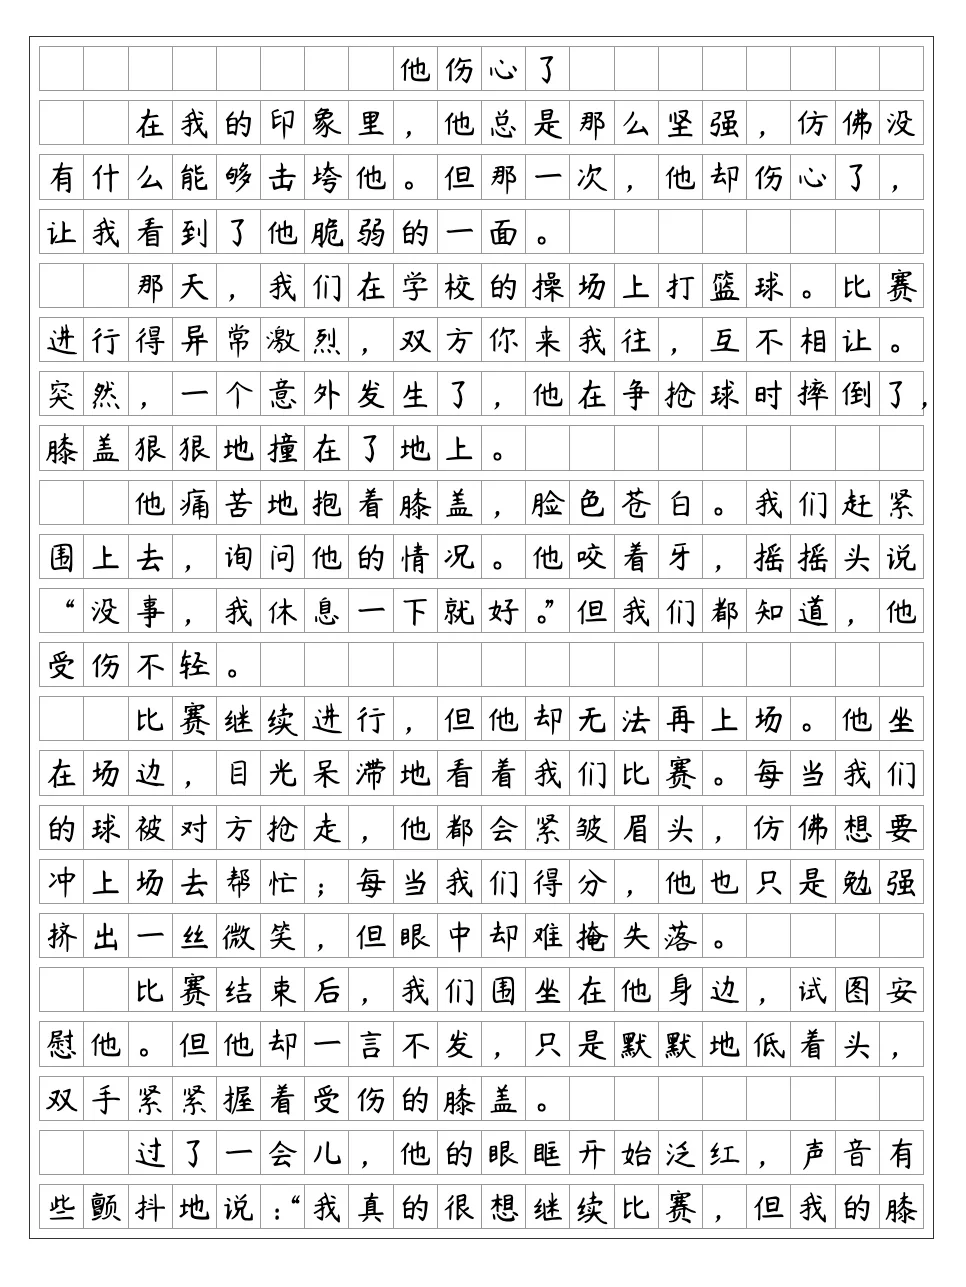 他伤心了
在我的印象里，他总是那么坚强，仿佛没
有什么能够击垮他。但那一次，他却伤心了，
让我看到了他脆弱的一面。
那天，我们在学校的操场上打篮球。比赛
进行得异常激烈，双方你来我往，互不相让。
突然，一个意外发生了，他在争抢球时摔倒了，
膝盖狠狠地撞在了地上。
他痛苦地抱着膝盖，脸色苍白。我们赶紧
围上去，询问他的情况。他咬着牙，摇摇头说
“没事，我休息一下就好。”但我们都知道，他
受伤不轻。
比赛继续进行，但他却无法再上场。他坐
在场边，目光呆滞地看着我们比赛。每当我们
的球被对方抢走，他都会紧皱眉头，仿佛想要
冲上场去帮忙；每当我们得分，他也只是勉强
挤出一丝微笑，但眼中却难掩失落。
比赛结束后，我们围坐在他身边，试图安
慰他。但他却一言不发，只是默默地低着头，
双手紧紧握着受伤的膝盖。
过了一会儿，他的眼眶开始泛红，声音有
些颤抖地说：“我真的很想继续比赛，但我的膝